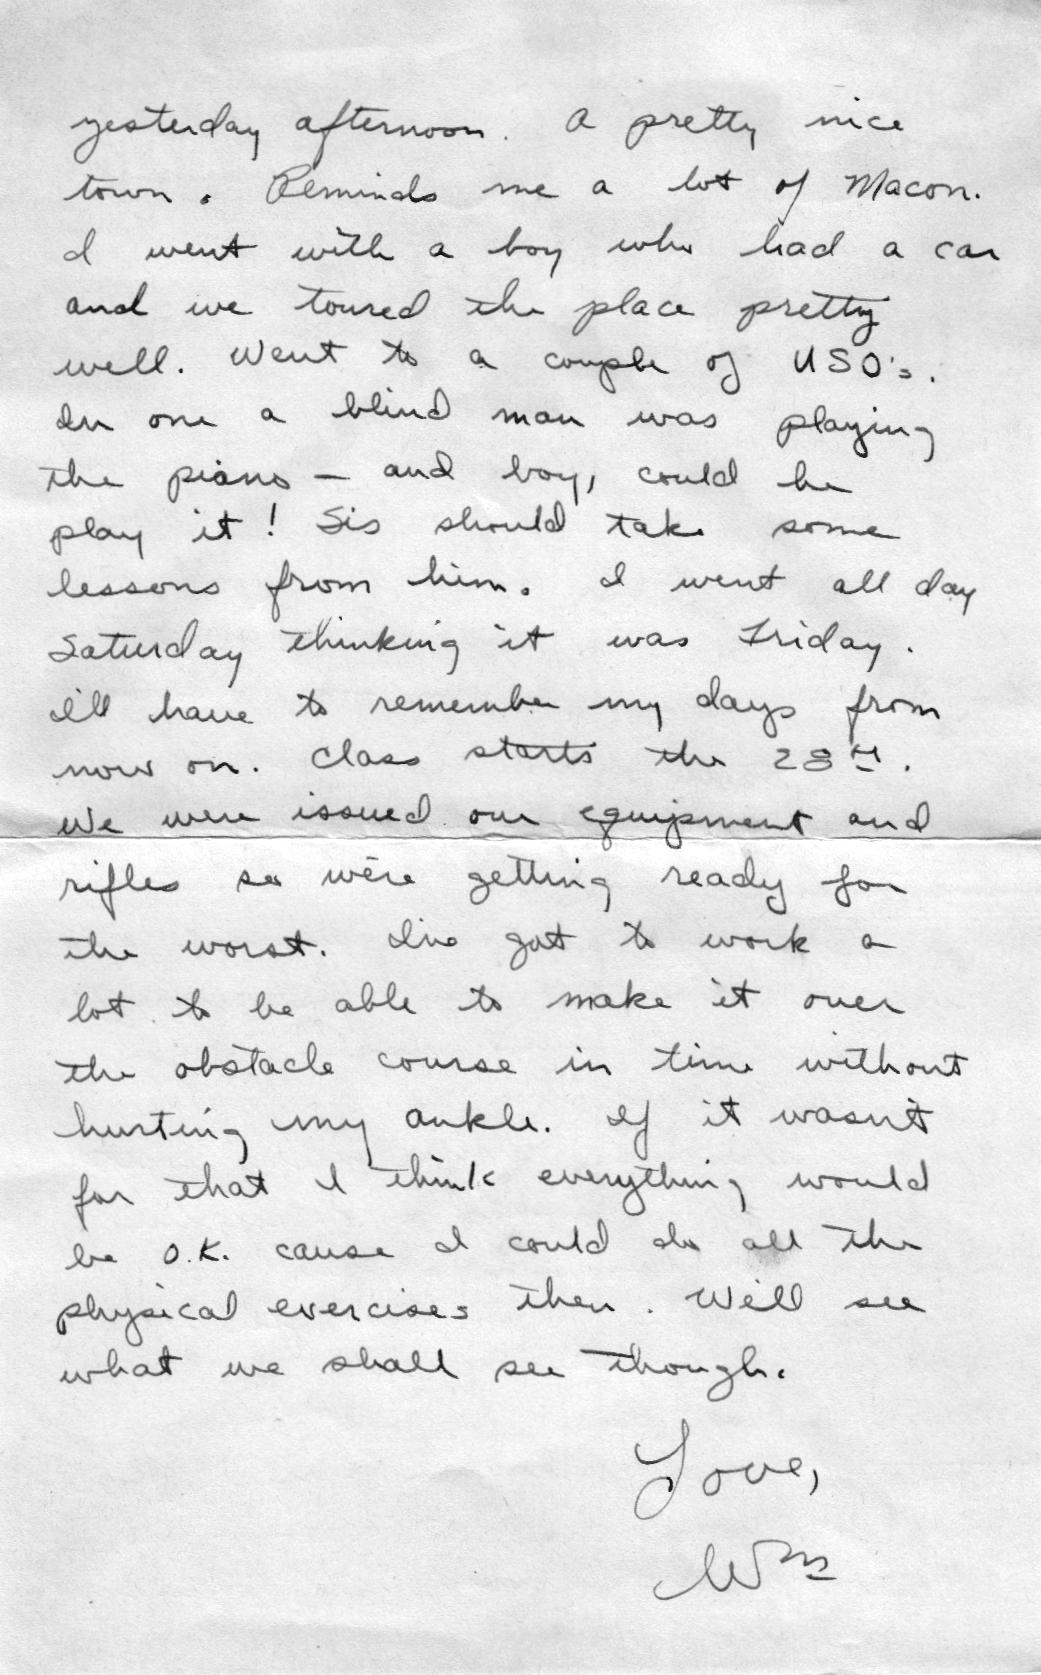 yesterday afternoon. A pretty nice
town. Reminds me a lot of Macon.
I went with a boy who had a car
and we toured the place pretty
well. Went to a couple of USO's.
In one a blind man was playing
the piano — and boy, could he
play it! Sis should take some
lessons from him. I went all day
Saturday thinking it was Friday.
I'll have to remember my days from
now on. Class starts the 28th.
We were issued our equipment and
rifles so we're getting ready for
the worst. I've got to work a
lot to be able to make it over
the obstacle course in time without
hurting my ankle. If it wasn't
for that I think everything would
be O.K. cause I could do all the
physical exercises then. We'll see
what we shall see though.
Love,
Wm